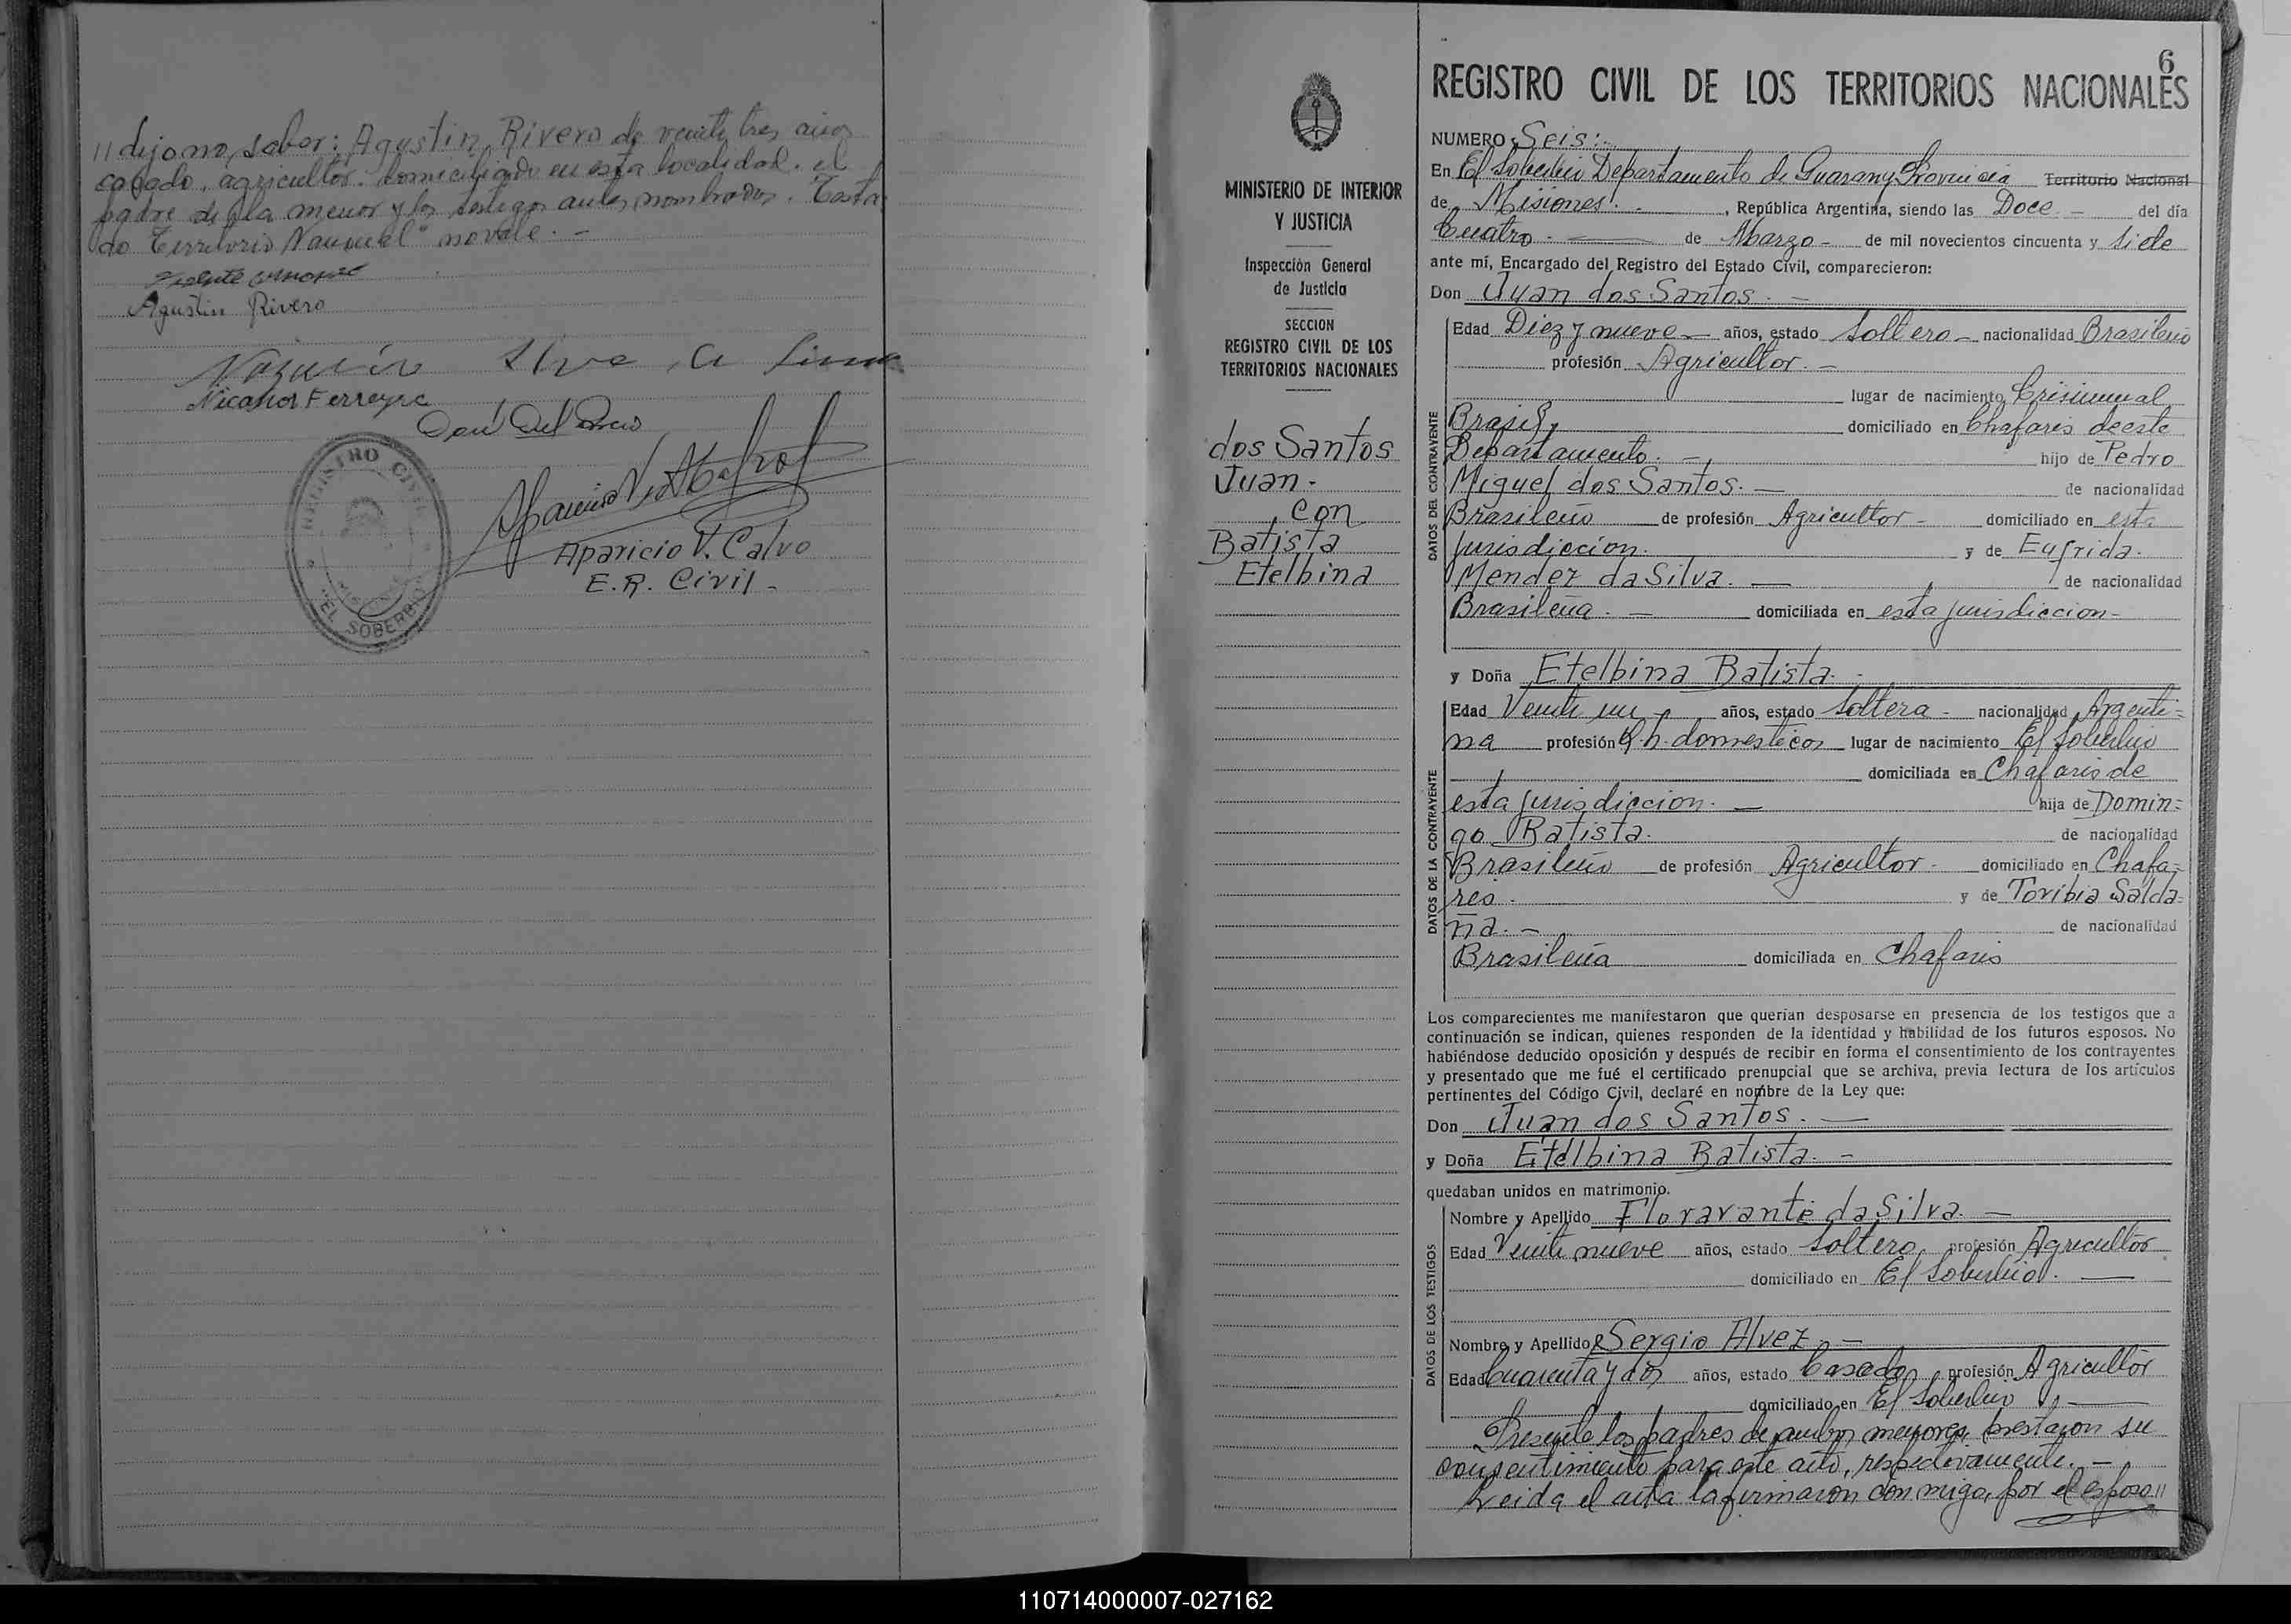 // dijo no saber: Agustin Rivero de veinte tres años
casado, agricultor. domiciliado en esta localidad. el
padre de la menor y los testigos antes nombrados. Testa
do "Territorio Nacional" no vale. -
Agustin Rivero
Nicanor Ferreyra
Aparicio V. Calvo
E. R. Civil -
REGISTRO CIVIL
MISIONES
"EL SOBERBIO"
MINISTERIO DE INTERIOR
Y JUSTICIA
Inspección General
de Justicia
SECCION
REGISTRO CIVIL DE LOS
TERRITORIOS NACIONALES
dos Santos
Juan -
con
Batista
Etelbina
6
REGISTRO CIVIL DE LOS TERRITORIOS NACIONALES
NUMERO Seis:-
En El Soberbio Departamento de Guarany Provincia Territorio Nacional
de Misiones. - , República Argentina, siendo las Doce - del día
Cuatro - de Marzo - de mil novecientos cincuenta y siete
ante mí, Encargado del Registro del Estado Civil, comparecieron:
Don Juan dos Santos. -
DATOS DEL CONTRAYENTE
Edad Diez y nueve - años, estado soltero - nacionalidad Brasileño
profesión Agricultor. -
lugar de nacimiento Crisiumal
Brasil, domiciliado en Chafaris de este
Departamento. - hijo de Pedro
Miguel dos Santos. - de nacionalidad
Brasileño de profesión Agricultor - domiciliado en esta
jurisdiccion. y de Eufrida
Mendez da Silva. - de nacionalidad
Brasileña. - domiciliada en esta jurisdiccion -
y Doña Etelbina Batista. -
DATOS DE LA CONTRAYENTE
Edad Veinte un - años, estado soltera - nacionalidad Argenti=
na profesión q. h. domesticos lugar de nacimiento El Soberbio
domiciliada en Chafaris de
esta jurisdiccion. - hija de Domin=
go Batista. de nacionalidad
Brasileño de profesión Agricultor - domiciliado en Chafa=
ris. y de Toribia Salda=
ña. - de nacionalidad
Brasileña domiciliada en Chafaris
Los comparecientes me manifestaron que querían desposarse en presencia de los testigos que a
continuación se indican, quienes responden de la identidad y habilidad de los futuros esposos. No
habiéndose deducido oposición y después de recibir en forma el consentimiento de los contrayentes
y presentado que me fué el certificado prenupcial que se archiva, previa lectura de los artículos
pertinentes del Código Civil, declaré en nombre de la Ley que:
Don Juan dos Santos. -
y Doña Etelbina Batista. -
quedaban unidos en matrimonio.
DATOS DE LOS TESTIGOS
Nombre y Apellido Floravante da Silva. -
Edad Veinte nueve años, estado soltero, profesión Agricultor
domiciliado en El Soberbio. -
Nombre y Apellido Sergio Alvez. -
Edad Cuarenta y dos años, estado Casado, profesión Agricultor
domiciliado en El Soberbio. -
Presente los padres de ambos menores prestaron su
consentimiento para este acto, respectivamente. -
Leida el acta la firmaron conmigo, por el esposo //
110714000007-027162